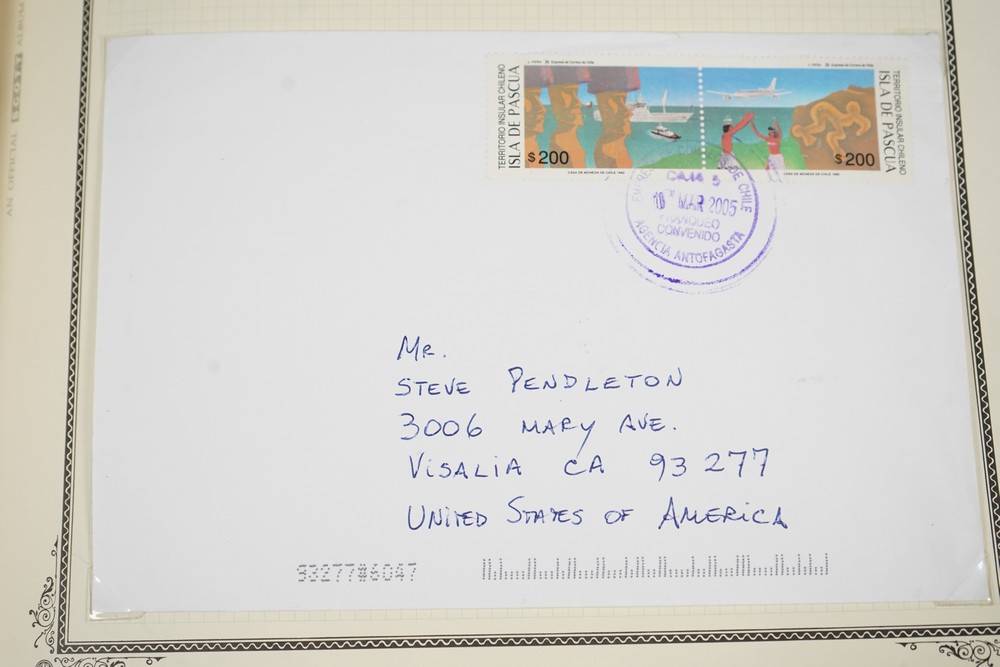 TERRITORIO INSULAR CHILENO
ISLA DE PASCUA
$200
CASA DE MONEDA DE CHILE
TERRITORIO INSULAR CHILENO
ISLA DE PASCUA
$200
CASA DE MONEDA DE CHILE
DE CHILE
CAJA 5
10 MAR 2005
FRANQUEO
CONVENIDO
AGENCIA ANTOFAGASTA
Mr.
STEVE PENDLETON
3006 MARY AVE.
VISALIA CA 93277
UNITED STATES OF AMERICA
93277#6047
AN OFFICIAL
ALBUM